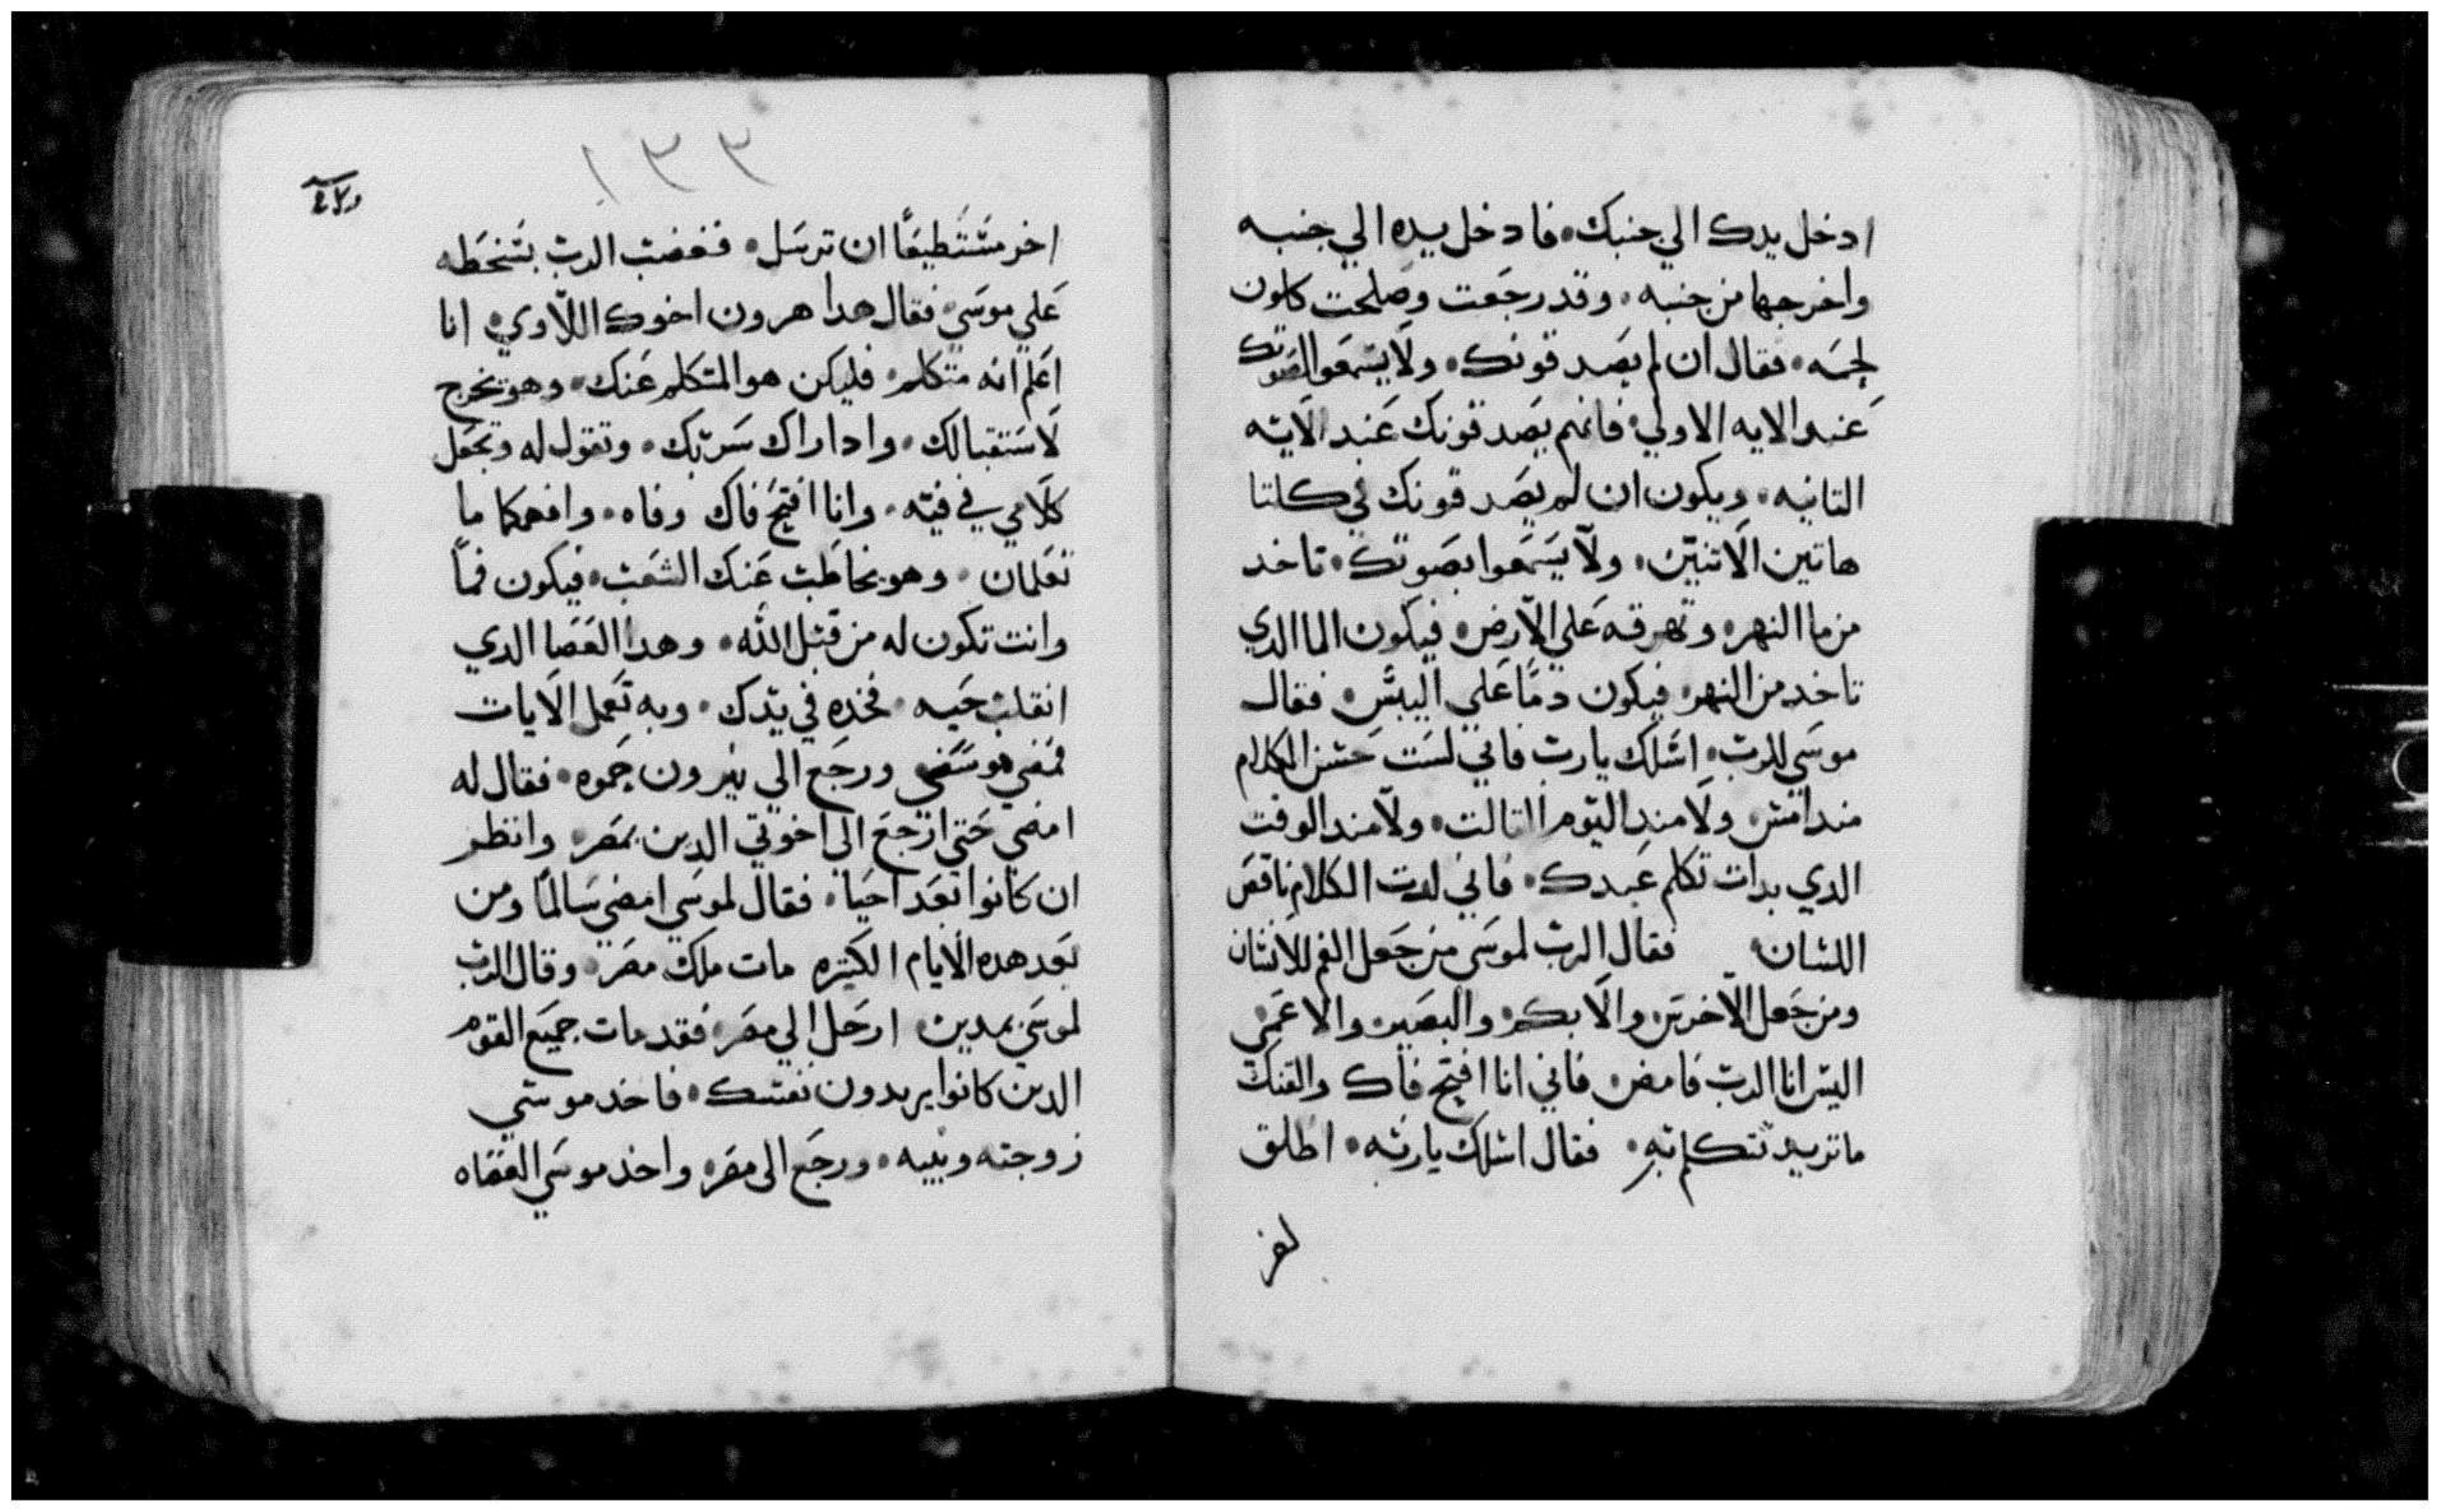 ادخل يدك الي جنبك فادخل يده الي جنبه
واخرجها من جنبه وقد رجعت وصلحت كلون
لحمه فقال ان لم يصدقونك ولا يسمعوا لصوتك
عند الايه الاولي فانهم يصدقونك عند الايه
التانيه ويكون ان لم يصدقونك في كلتا
هاتين الاتنين ولا يسمعوا بصوتك تاخد
من ما النهر وتهرقه علي الارض فيكون الما الدي
تاخد من النهر فيكون دمًا علي اليبس فقال
موسي للرب اسلك يارب فاني لست حسن الكلام
مند امس ولا مند اليوم التالت ولا مند الوقت
الدي بدات تكلم عبدك فاني لدت الكلام ناقص
اللسان فقال الرب لموسي من جعل الفم للانسان
ومن جعل الاخرس والابكم والبصير والاعمي
اليس انا الرب فامض فاني انا افتح فاك والقنك
ما تريد تتكلم به فقال اسلك يارب اطلق
١٣٣
اخر مستطيعًا ان ترسل فغضب الرب بسخطه
علي موسي فقال هدا هرون اخوك اللاوي انا
اعلم انه متكلم فليكن هو المتكلم عنك وهو يخرج
لاستقبالك وادا راك سر بك وتقول له وتجعل
كلامي في فيه وانا افتح فاك وفاه وافهمكما ما
تعلمان وهو يخاطب عنك الشعب فيكون فمًا
وانت تكون له من قبل الله وهدا العصا الدي
انقلب حيه فخده في يدك وبه تعمل الايات
فمضي موسي ورجع الي يترون حموه فقال له
امضي حتي ارجع الي اخوتي الدين بمصر وانظر
ان كانوا بعد احيا فقال لموسي امضي سالمًا ومن
بعد هده الايام الكتيره مات ملك مصر وقال الرب
لموسي بمدين ارحل الي مصر فقد مات جميع القوم
الدين كانوا يريدون نفسك فاخد موسي
زوجته وبنيه ورجع الي مصر واخد موسي العصاه